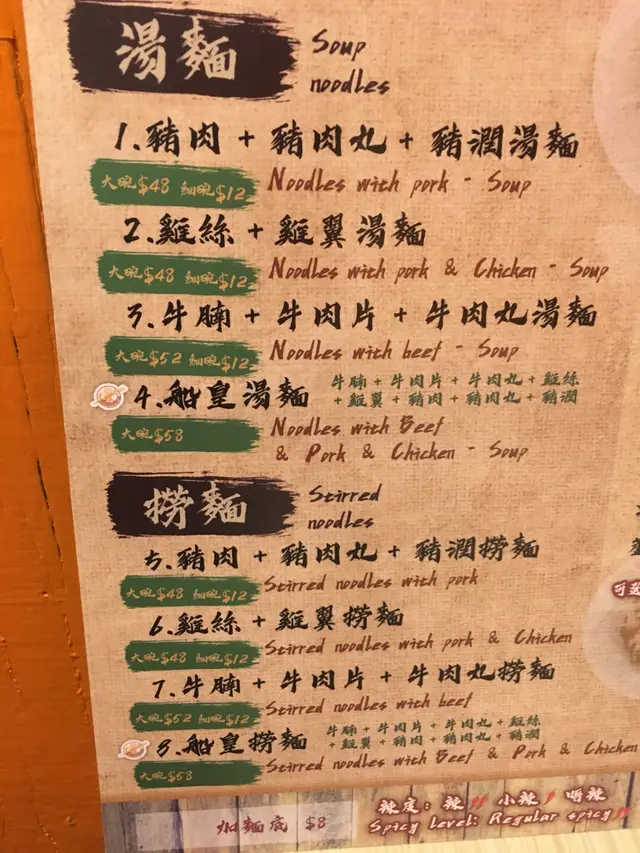 湯麵
Soup
noodles
1.豬肉 + 豬肉丸 + 豬潤湯麵
大碗$48 細碗$12
Noodles with pork - Soup
2.雞絲 + 雞翼湯麵
大碗$48 細碗$12
Noodles with pork & Chicken - Soup
3.牛腩 + 牛肉片 + 牛肉丸湯麵
大碗$52 細碗$12
Noodles with beef - Soup
4.船皇湯麵
牛腩 + 牛肉片 + 牛肉丸 + 雞絲
+ 雞翼 + 豬肉 + 豬肉丸 + 豬潤
大碗$58
Noodles with Beef
& Pork & Chicken - Soup
撈麵
Stirred
noodles
5.豬肉 + 豬肉丸 + 豬潤撈麵
大碗$48 細碗$12
Stirred noodles with pork
6.雞絲 + 雞翼撈麵
大碗$48 細碗$12
Stirred noodles with pork & Chicken
7.牛腩 + 牛肉片 + 牛肉丸撈麵
大碗$52 細碗$12
Stirred noodles with beef
8.船皇撈麵
牛腩 + 牛肉片 + 牛肉丸 + 雞絲
+ 雞翼 + 豬肉 + 豬肉丸 + 豬潤
大碗$58
Stirred noodles with Beef & Pork & Chicken
加麵底 $8
辣度: 辣 小辣 唔辣
Spicy Level: Regular spicy
可選